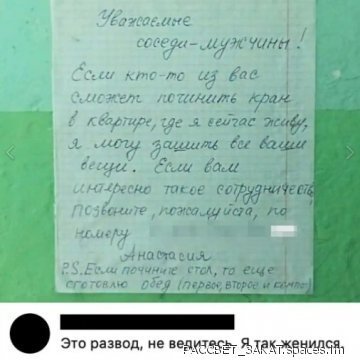 Уважаемые
соседи-мужчины!
Если кто-то из вас
сможет починить кран
в квартире, где я сейчас живу,
я могу зашить все ваши
вещи. Если вам
интересно такое сотрудничеств
позвоните, пожалуйста, по
номеру
Анастасия
P.S. Если почините стол, то еще
сготовлю обед (первое, второе и компот)
Это развод, не ведитесь. Я так женился.
РАССВЕТ_ЗАКАТ.spaces.im